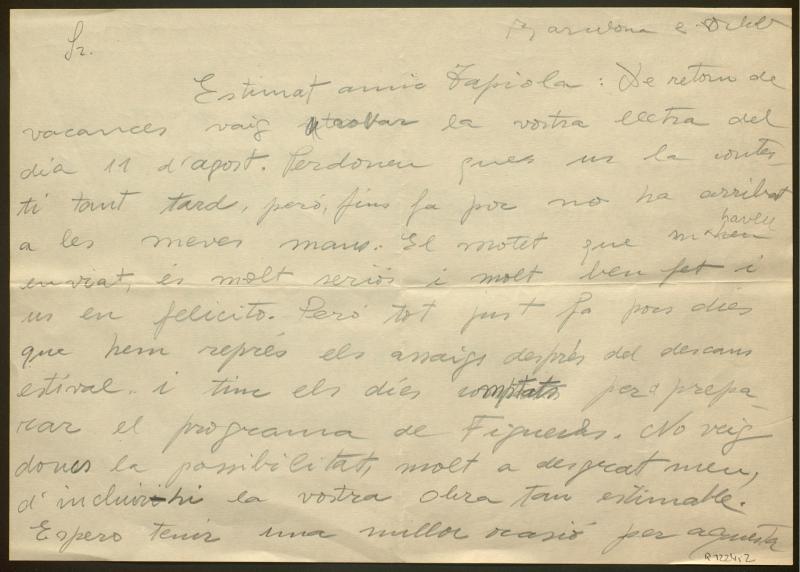 Barcelona 2 Octbr
Sr.
Estimat amic Tapiola: De retorn de
vacances vaig trovar la vostra lletra del
día 11 d'agost. Perdoneu ques us la contes-
ti tant tard, peró, fins fa poc no ha arribat
a les meves mans. El motet que m'haveu
enviat, és molt seriós i molt ben fet i
us en felicito. Peró tot just fa pocs dies
que hem représ els assaigs després del descans
estival. i tinc els díes comptats per a prepa-
rar el programa de Figueras. No veig
doncs la possibilitat, molt a desgrat meu,
d'incluir-hi la vostra obra tan estimable.
Espero tenir una millor ocasió per aquesta
R 1224,2